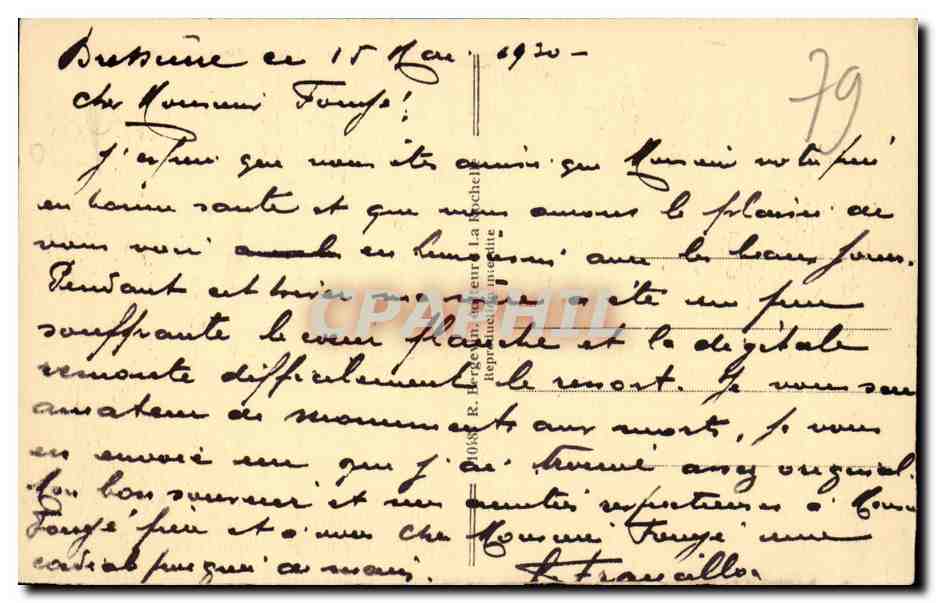 ce 15 Mai 1930 -
79
cher Monsieur Fougé!
J'espère que vous êtes ainsi que Monsieur votre père
en bonne santé et que nous aurons le plaisir de
vous voir en Limousin avec les beaux jours.
Pendant cet hiver ma a été un peu
souffrante le cœur flanche et la digitale
remonte difficilement le ressort. Je vous sais
amateur de monuments aux morts, je vous
en envoie un que j'ai trouvé assez original.
Mon bon souvenir et mes amitiés respectueuses à Monsieur
Fougé père et à vous cher Monsieur Fougé une
cordiale poignée de main.
1048 R. Bergevin, éditeur, La Rochelle
Reproduction interdite
CPAPHIL